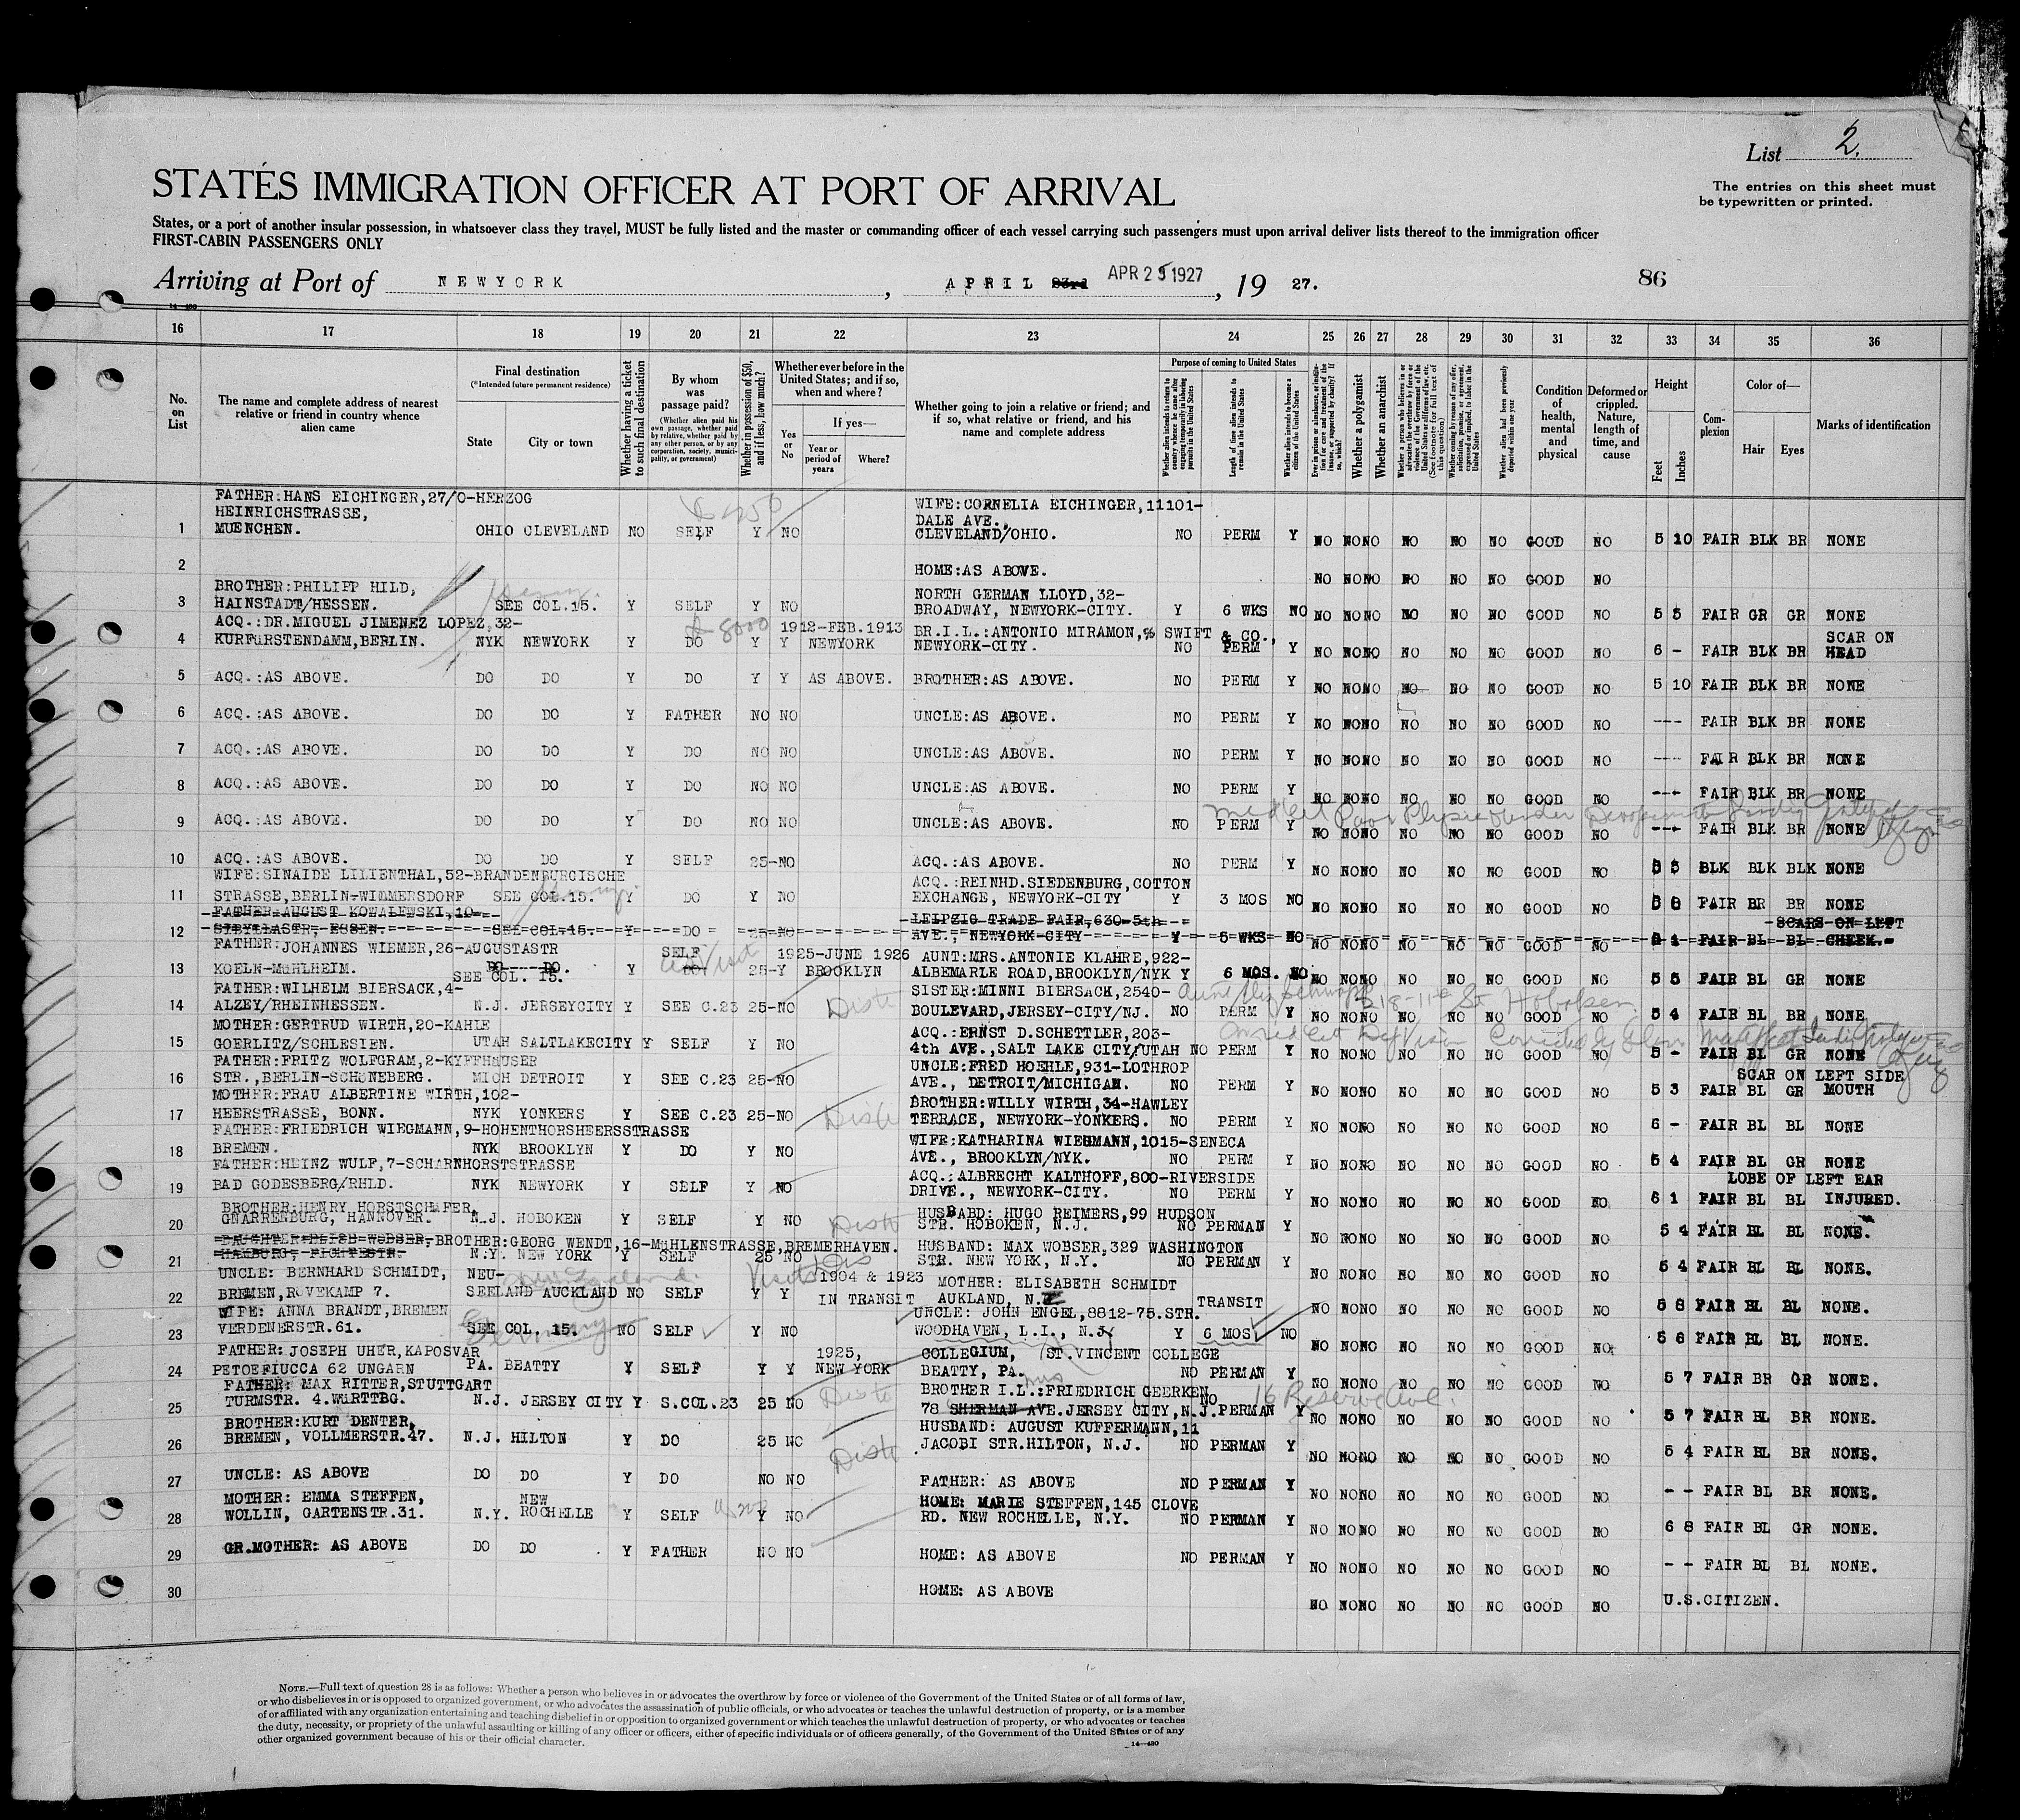 List 2.
STATES IMMIGRATION OFFICER AT PORT OF ARRIVAL
The entries on this sheet must
be typewritten or printed.
States, or a port of another insular possession, in whatsoever class they travel, MUST be fully listed and the master or commanding officer of each vessel carrying such passengers must upon arrival deliver lists thereof to the immigration officer
FIRST-CABIN PASSENGERS ONLY
Arriving at Port of NEWYORK, APRIL 23rd APR 25 1927, 19 27. 86
14-480
16 17 18 19 20 21 22 23 24 25 26 27 28 29 30 31 32 33 34 35 36
No. on List
The name and complete address of nearest relative or friend in country whence alien came
Final destination
(*Intended future permanent residence)
State City or town
Whether having a ticket to such final destination
By whom was passage paid?
(Whether alien paid his own passage, whether paid by relative, whether paid by any other person, or by any corporation, society, municipality, or government)
Whether in possession of $50, and if less, how much?
Whether ever before in the United States; and if so, when and where?
Yes or No
If yes—
Year or period of years Where?
Whether going to join a relative or friend; and if so, what relative or friend, and his name and complete address
Purpose of coming to United States
Whether alien intends to return to country whence he came after engaging temporarily in laboring pursuits in the United States
Length of time alien intends to remain in the United States
Whether alien intends to become a citizen of the United States
Whether a polygamist
Whether an anarchist
Condition of health, mental and physical
Deformed or crippled. Nature, length of time, and cause
Height
Feet Inches
Complexion
Color of—
Hair Eyes
Marks of identification
FATHER:HANS EICHINGER,27/0-HERZOG
HEINRICHSTRASSE, WIFE:CORNELIA EICHINGER,11101-
DALE AVE.,
1 MUENCHEN. OHIO CLEVELAND NO SELF Y NO CLEVELAND/OHIO. NO PERM Y NO NO NO NO NO NO GOOD NO 5 10 FAIR BLK BR NONE
2 HOME:AS ABOVE. NO NO NO NO NO NO GOOD NO
BROTHER:PHILIPP HILD, NORTH GERMAN LLOYD,32-
3 HAINSTADT/HESSEN. SEE COL.15. Y SELF Y NO BROADWAY, NEWYORK-CITY. Y 6 WKS NO NO NO NO NO NO NO GOOD NO 5 5 FAIR GR GR NONE
ACQ.:DR.MIGUEL JIMENEZ LOPEZ,32- 1912-FEB.1913 BR.I.L.:ANTONIO MIRAMON,% SWIFT & CO., SCAR ON
4 KURFüRSTENDAMM,BERLIN. NYK NEWYORK Y DO Y Y NEWYORK NEWYORK-CITY. NO PERM Y NO NO NO NO NO NO GOOD NO 6 - FAIR BLK BR HEAD
5 ACQ.:AS ABOVE. DO DO Y DO Y Y AS ABOVE. BROTHER:AS ABOVE. NO PERM Y NO NO NO NO NO NO GOOD NO 5 10 FAIR BLK BR NONE
6 ACQ.:AS ABOVE. DO DO Y FATHER NO NO UNCLE:AS ABOVE. NO PERM Y NO NO NO NO NO NO GOOD NO --- FAIR BLK BR NONE
7 ACQ.:AS ABOVE. DO DO Y DO NO NO UNCLE:AS ABOVE. NO PERM Y NO NO NO NO NO NO GOOD NO --- FAIR BLK BR NONE
8 ACQ.:AS ABOVE. DO DO Y DO NO NO UNCLE:AS ABOVE. NO PERM Y NO NO NO NO NO NO GOOD NO --- FAIR BLK BR NONE
9 ACQ.:AS ABOVE. DO DO Y DO NO NO UNCLE:AS ABOVE. NO PERM Y NO NO NO NO NO NO GOOD NO --- FAIR BLK BR NONE
10 ACQ.:AS ABOVE. DO DO Y SELF 25-NO ACQ.:AS ABOVE. NO PERM Y NO NO NO NO NO NO GOOD NO 5 5 BLK BLK BLK NONE
WIFE:SINAIDE LILIENTHAL,52-BRANDENBURGISCHE ACQ.:REINHD.SIEDENBURG,COTTON
11 STRASSE,BERLIN-WILMERSDORF SEE COL.15. Y DO Y NO EXCHANGE, NEWYORK-CITY Y 3 MOS NO NO NO NO NO NO NO GOOD NO 5 8 FAIR BR BR NONE
FATHER:AUGUST KOWALEWSKI,10- LEIPZIG TRADE FAIR,630-5th- SCARS ON LEFT
12 SIBYLLASTR, ESSEN. SEE COL.15. Y DO 25-NO AVE., NEWYORK-CITY Y 5 WKS NO NO NO NO NO NO NO GOOD NO 6 1 FAIR BL BL CHEEK.
FATHER:JOHANNES WIEMER,26-AUGUSTASTR SELF 1925-JUNE 1926 AUNT:MRS.ANTONIE KLAHRE,922-
13 KOELN-MüHLHEIM. DO DO. SEE COL. 15. Y DO 25-Y BROOKLYN ALBEMARLE ROAD,BROOKLYN/NYK Y 6 MOS. NO NO NO NO NO NO NO GOOD NO 5 5 FAIR BL GR NONE
FATHER:WILHELM BIERSACK,4- SISTER:MINNI BIERSACK,2540- 518-11th St Hoboken
14 ALZEY/RHEINHESSEN. N.J. JERSEYCITY Y SEE C.23 25-NO BOULEVARD,JERSEY-CITY/NJ. NO PERM Y NO NO NO NO NO NO GOOD NO 5 4 FAIR BL BR NONE
MOTHER:GERTRUD WIRTH,20-KAHLE ACQ.:ERNST D.SCHETTLER,203-
15 GOERLITZ/SCHLESIEN. UTAH SALTLAKECITY Y SELF Y NO 4th AVE.,SALT LAKE CITY/UTAH NO PERM Y NO NO NO NO NO NO GOOD NO 5 - FAIR BL GR NONE
FATHER:FRITZ WOLFGRAM,2-KYFFHäUSER UNCLE:FRED HOERLE,931-LOTHROP SCAR ON LEFT SIDE
16 STR.,BERLIN-SCHöNEBERG. MICH DETROIT Y SEE C.23 25-NO AVE., DETROIT/MICHIGAN. NO PERM Y NO NO NO NO NO NO GOOD NO 5 3 FAIR BL GR MOUTH
MOTHER:FRAU ALBERTINE WIRTH,102- BROTHER:WILLY WIRTH,34-HAWLEY
17 HEERSTRASSE, BONN. NYK YONKERS Y SEE C.23 25-NO TERRACE, NEWYORK-YONKERS. NO PERM Y NO NO NO NO NO NO GOOD NO 6 - FAIR BL BL NONE
FATHER:FRIEDRICH WIEGMANN,9-HOHENTHORSHEERSSTRASSE WIFE:KATHARINA WIEGMANN,1015-SENECA
18 BREMEN. NYK BROOKLYN Y DO Y NO AVE., BROOKLYN/NYK. NO PERM Y NO NO NO NO NO NO GOOD NO 5 4 FAIR BL GR NONE
FATHER:HEINZ WULF,7-SCHARNHORSTSTRASSE ACQ.:ALBRECHT KALTHOFF,800-RIVERSIDE LOBE OF LEFT EAR
19 BAD GODESBERG/RHLD. NYK NEWYORK Y SELF Y NO DRIVE., NEWYORK-CITY. NO PERM Y NO NO NO NO NO NO GOOD NO 6 1 FAIR BL BL INJURED.
BROTHER:HENRY HORSTSCHäFER, HUSBABD: HUGO REIMERS,99 HUDSON
20 GNARRENBURG, HANNOVER. N.J. HOBOKEN Y SELF Y NO STR. HOBOKEN, N.J. NO PERMAN Y NO NO NO NO NO NO GOOD NO 5 4 FAIR BL BL NONE.
DAUGHTER ELISE WOBSER, BROTHER:GEORG WENDT,16-MüHLENSTRASSE,BREMERHAVEN. HUSBAND: MAX WOBSER,329 WASHINGTON
21 HAMBURG, FICHTESTR. N.Y. NEW YORK Y SELF 25 NO STR. NEW YORK, N.Y. NO PERMAN Y NO NO NO NO NO NO GOOD NO 5 4 FAIR BL BL NONE.
UNCLE: BERNHARD SCHMIDT, NEU- 1904 & 1923 MOTHER: ELISABETH SCHMIDT
22 BREMEN,ROVEKAMP 7. SEELAND AUCKLAND NO SELF Y Y IN TRANSIT AUKLAND, N.Z TRANSIT NO NO NO NO NO NO GOOD NO 5 8 FAIR BL BL NONE.
WIFE: ANNA BRANDT,BREMEN UNCLE: JOHN ENGEL,8812-75.STR.
23 VERDENERSTR.61. SEE COL. 15. Germany NO SELF Y NO WOODHAVEN, L.I., N.J. Y 6 MOS NO NO NO NO NO NO NO GOOD NO 5 6 FAIR BL BL NONE.
FATHER: JOSEPH UHER,KAPOSVAR 1925, COLLEGIUM, ST.VINCENT COLLEGE
24 PETOEFIUCCA 62 UNGARN PA. BEATTY Y SELF Y Y NEW YORK BEATTY, PA. NO PERMAN Y NO NO NO NO NO NO GOOD NO 5 7 FAIR BR GR NONE.
FATHER: MAX RITTER,STUTTGART BROTHER I.L.:FRIEDRICH GEERKEN 16 Reserve Ave.
25 TURMSTR. 4.WüRTTBG. N.J. JERSEY CITY Y S.COL.23 25 NO 78 SHERMAN AVE.JERSEY CITY,N.J. NO PERMAN Y NO NO NO NO NO NO GOOD NO 5 7 FAIR BL BR NONE.
BROTHER:KURT DENTER, HUSBAND: AUGUST KUFFERMANN,11
26 BREMEN, VOLLMERSTR.47. N.J. HILTON Y DO 25 NO JACOBI STR.HILTON, N.J. NO PERMAN Y NO NO NO NO NO NO GOOD NO 5 4 FAIR BL BR NONE.
27 UNCLE: AS ABOVE DO DO Y DO NO NO FATHER: AS ABOVE NO PERMAN Y NO NO NO NO NO NO GOOD NO - - FAIR BL BR NONE.
MOTHER: EMMA STEFFEN, NEW HOME: MARIE STEFFEN,145 CLOVE
28 WOLLIN, GARTENSTR.31. N.Y. ROCHELLE Y SELF Y NO RD. NEW ROCHELLE, N.Y. NO PERMAN Y NO NO NO NO NO NO GOOD NO 6 8 FAIR BL GR NONE.
29 GR.MOTHER: AS ABOVE DO DO Y FATHER NO NO HOME: AS ABOVE NO PERMAN Y NO NO NO NO NO NO GOOD NO - - FAIR BL BL NONE.
30 HOME: AS ABOVE NO NO NO NO NO NO GOOD NO U.S.CITIZEN.
NOTE.—Full text of question 28 is as follows: Whether a person who believes in or advocates the overthrow by force or violence of the Government of the United States or of all forms of law,
or who disbelieves in or is opposed to organized government, or who advocates the assassination of public officials, or who advocates or teaches the unlawful destruction of property, or is a member
of or affiliated with any organization entertaining and teaching disbelief in or opposition to organized government or which teaches the unlawful destruction of property, or who advocates or teaches
the duty, necessity, or propriety of the unlawful assaulting or killing of any officer or officers, either of specific individuals or of officers generally, of the Government of the United States or of any
other organized government because of his or their official character.
14-480